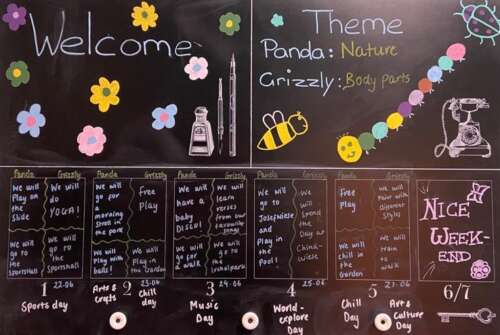 Welcome
Theme
Panda: Nature
Grizzly: Body parts
Panda Grizzly Panda Grizzly Panda Grizzly Panda Grizzly Panda Grizzly
We will
Play on
the
Slide
We
will
do
YOGA!
We will
go to
the
Sportshall
We will
go to
the
Sportshall
We
will
go for
a
morning
stroll in
the park
Free
Play
We will
Play with
balls!
We will
Play in
the Garden
We
will
have
a
baby
Disco!
We will
learn
verses
from our
favourite
songs
We
will
go for
a walk
We will
go to
We
will
go to
Josefwiese
and
Play in
the
Pool!
We
will
Spend
the
Day
at
China-
wiese
Free
Play
We will
chill in
the
Garden
We will
Paint with
different
Styles
NICE
WEEK-
END
1 22.06
Sports day
2 23.06
Arts &
Crafts
Chill
day
3 24.06
Music
Day
4 25.06
World-
explore
Day
5
Chill
Day
Art &
Culture
Day
6/7